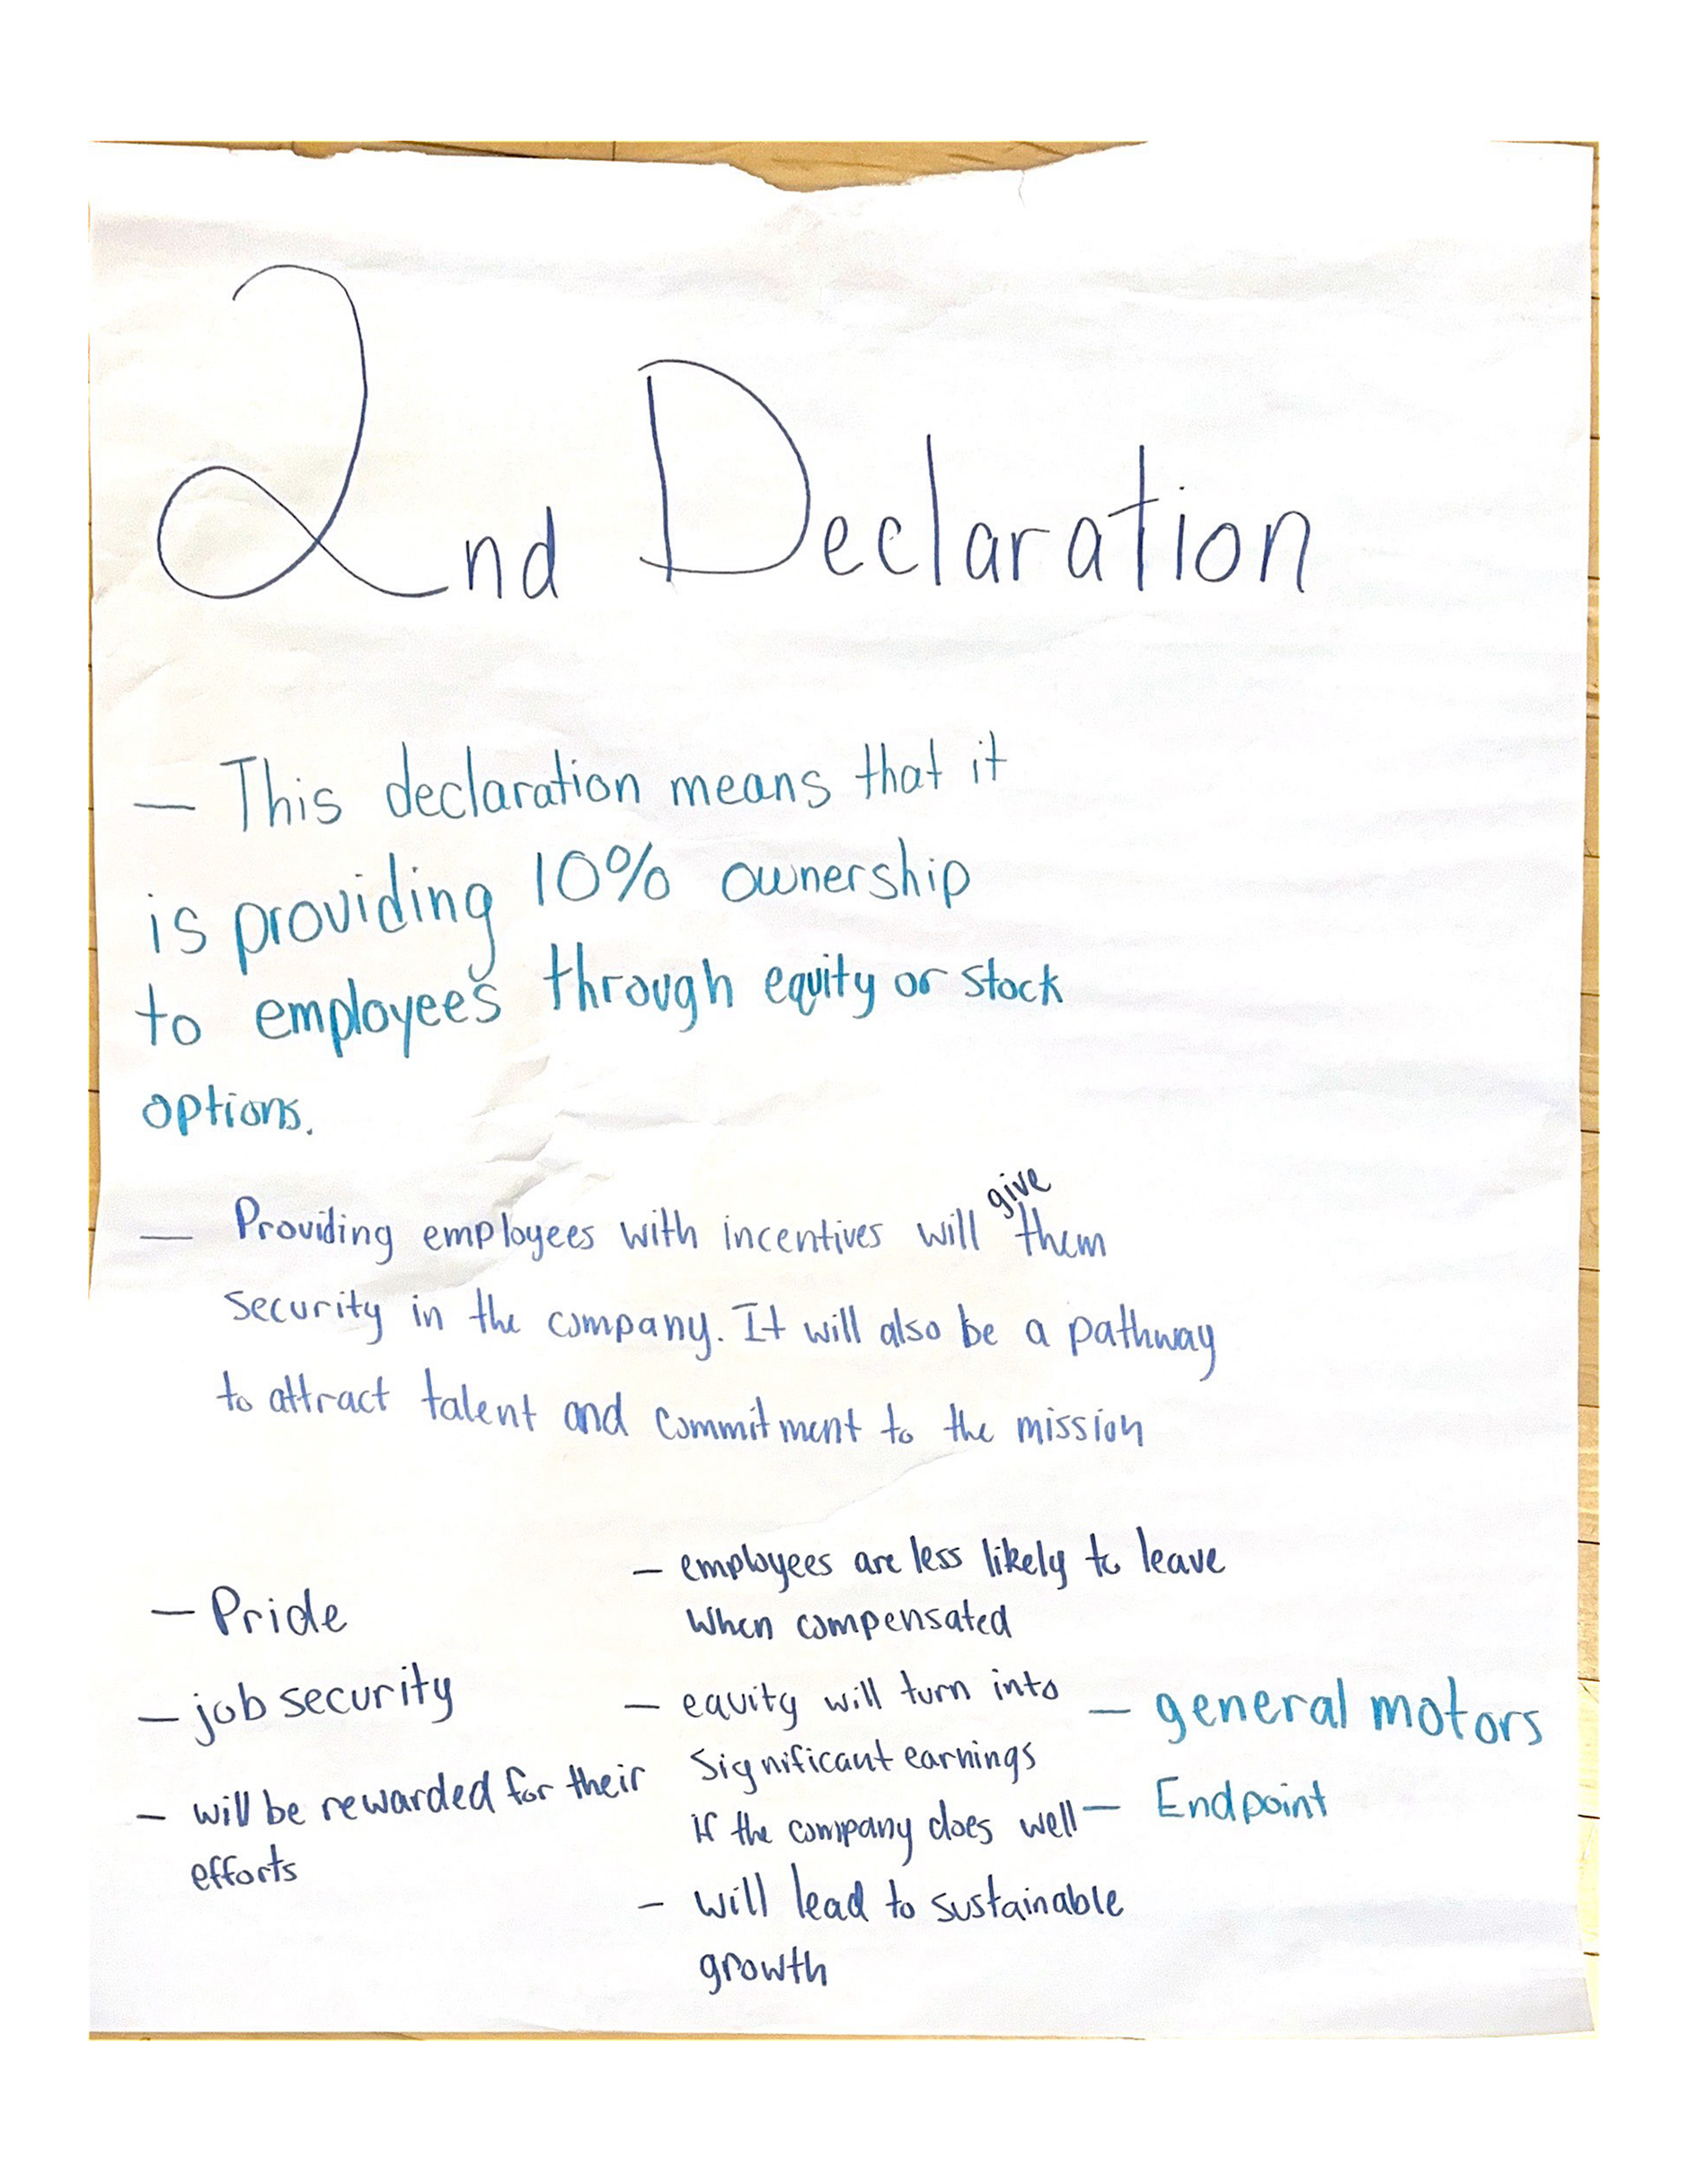 2nd Declaration
— This declaration means that it
is providing 10% ownership
to employees through equity or stock
options.
— Providing employees with incentives will give them
security in the company. It will also be a pathway
to attract talent and commitment to the mission
— Pride
— job security
— will be rewarded for their
efforts
— employees are less likely to leave
when compensated
— equity will turn into
significant earnings
if the company does well
— will lead to sustainable
growth
— general motors
— Endpoint